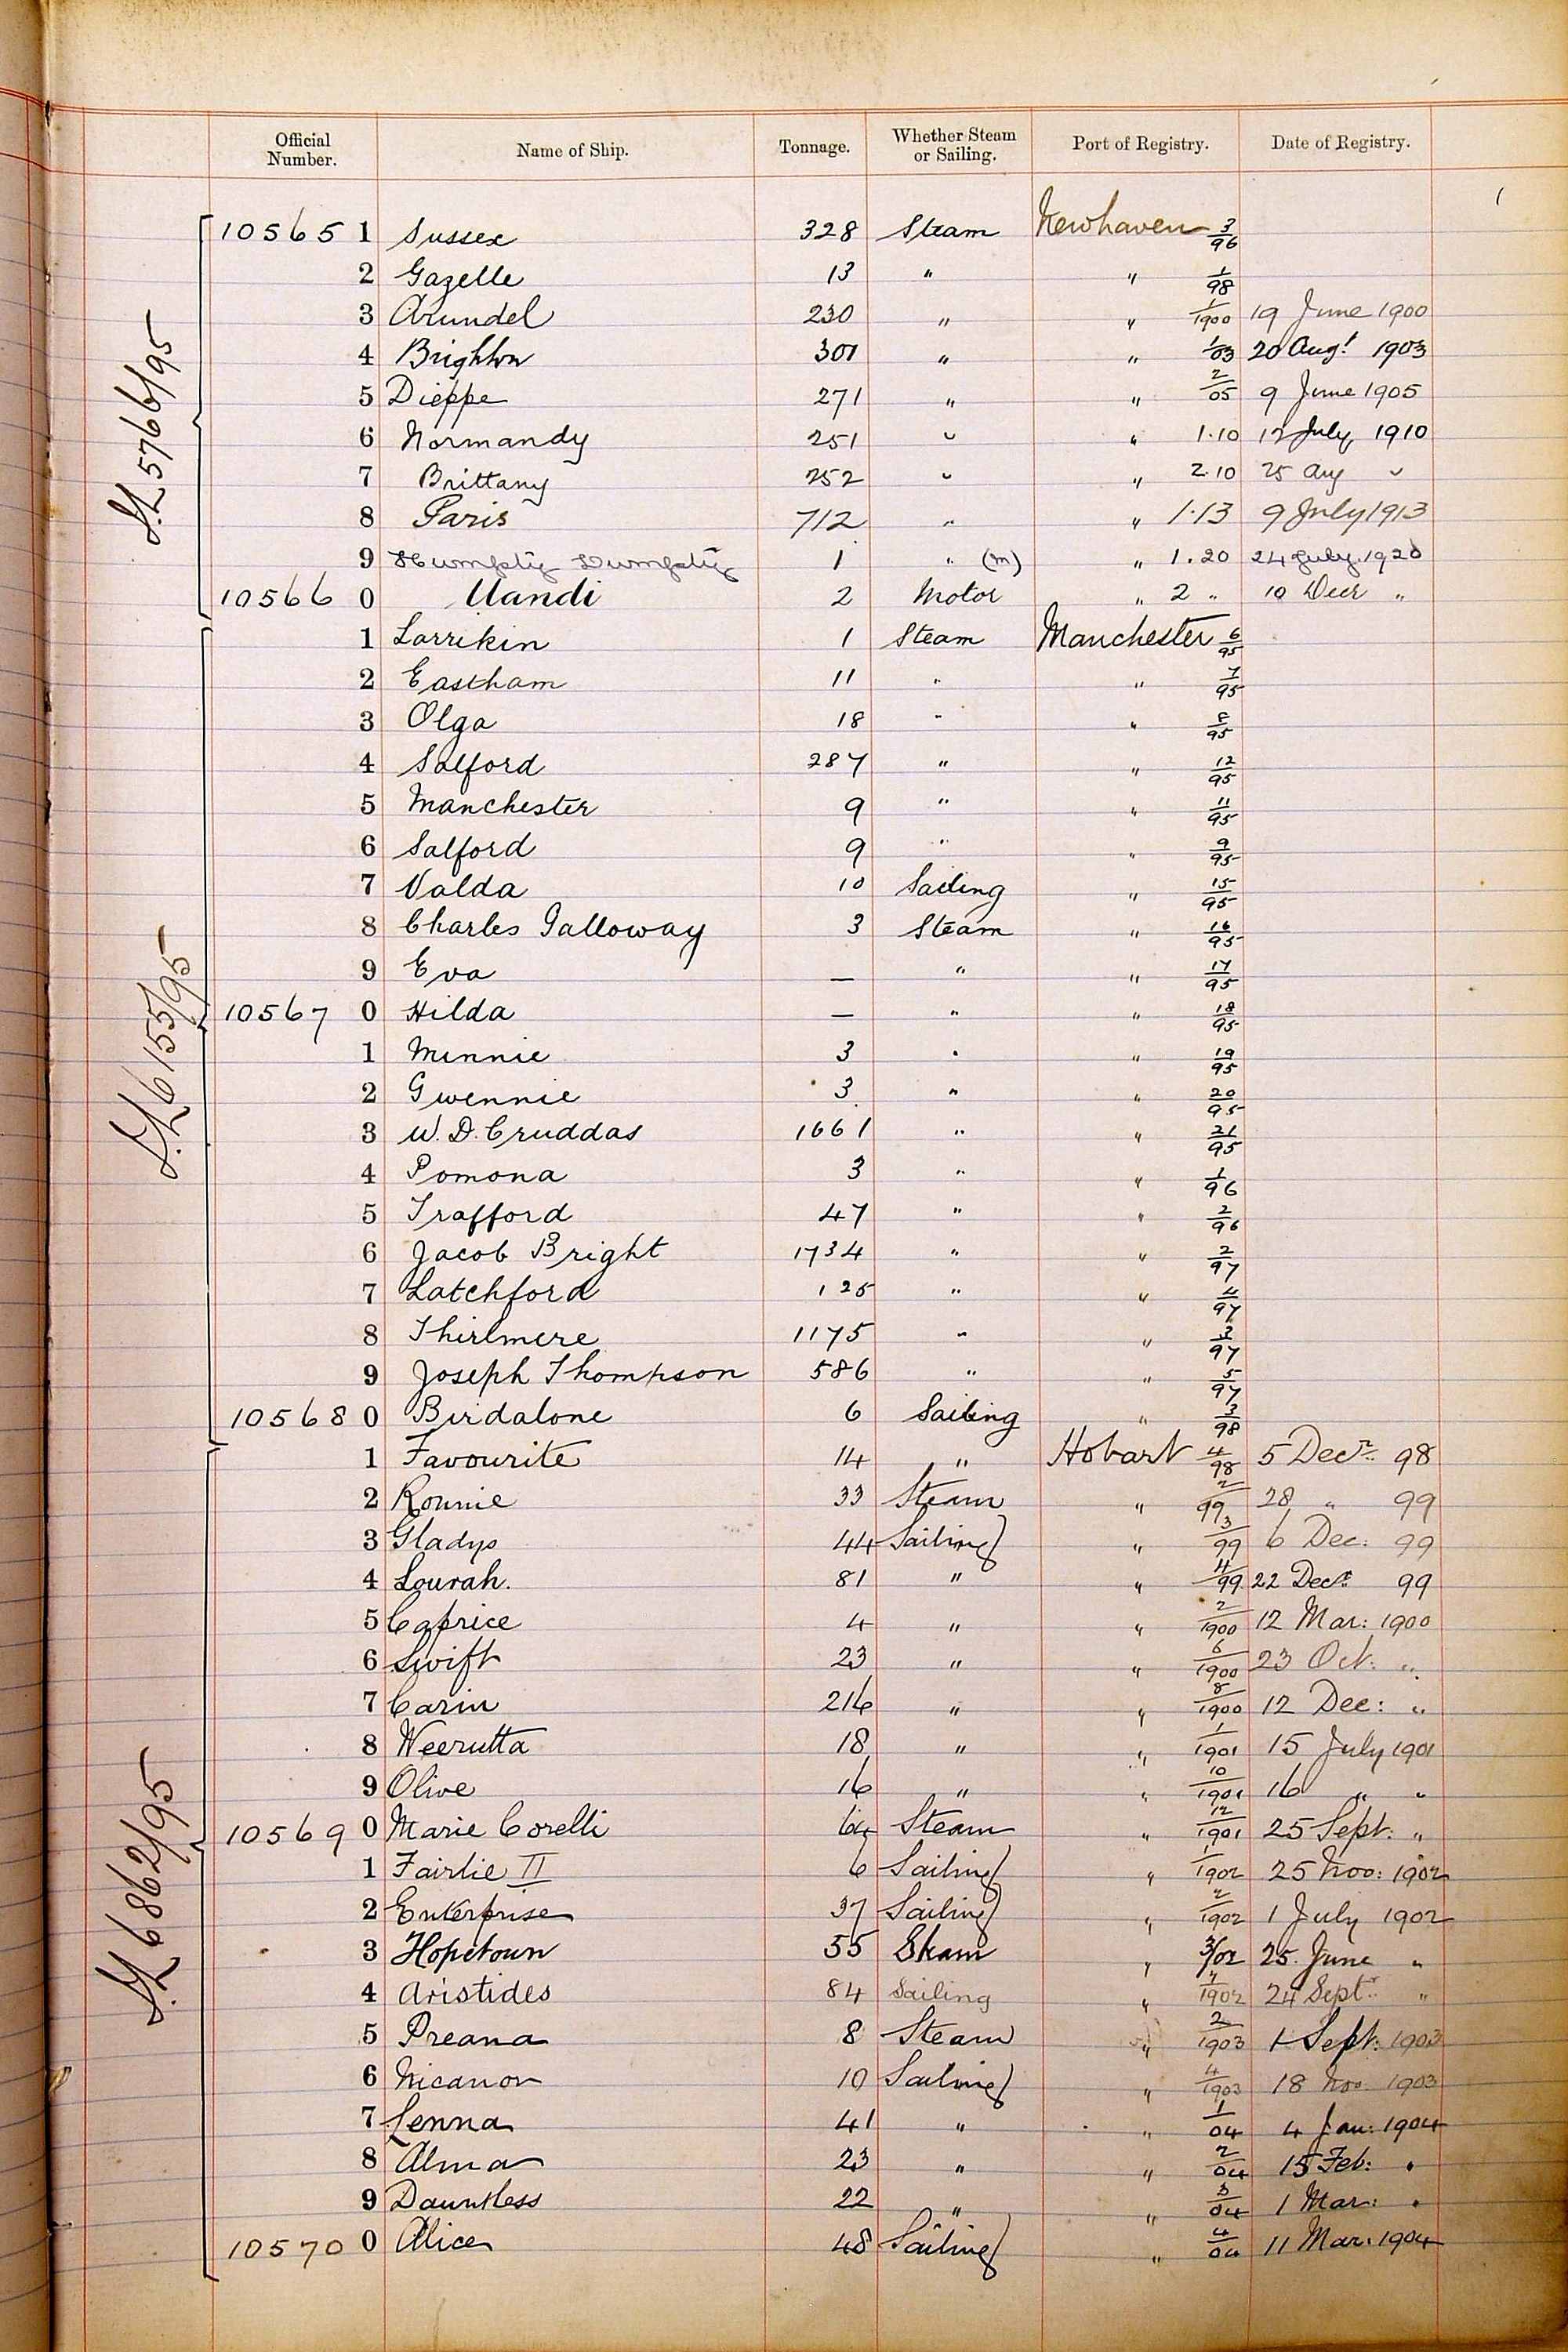 Official Number. Name of Ship. Tonnage. Whether Steam or Sailing. Port of Registry. Date of Registry.
10565 1 Sussex 328 Steam Newhaven 3/96
2 Gazelle 13 " " 1/98
3 Arundel 230 " " 1/1900 19 June 1900
4 Brighton 301 " " 1/03 20 Augt 1903
5 Dieppe 271 " " 2/05 9 June 1905
6 Normandy 251 " " 1.10 12 July 1910
7 Brittany 252 " " 2.10 25 Aug "
8 Paris 712 " " 1.13 9 July 1913
9 Humpty Dumpty 1 " (m) " 1.20 24 July. 1920
10566 0 Uandi 2 Motor " 2 " 10 Decr "
1 Larrikin 1 Steam Manchester 6/95
2 Eastham 11 " " 7/95
3 Olga 18 " " 8/95
4 Salford 287 " " 12/95
5 Manchester 9 " " 11/95
6 Salford 9 " " 9/95
7 Valda 10 Sailing " 15/95
8 Charles Galloway 3 Steam " 16/95
9 Eva — " " 17/95
10567 0 Hilda — " " 18/95
1 Minnie 3 " " 19/95
2 Gwennie 3 " " 20/95
3 W. D. Cruddas 1661 " " 21/95
4 Pomona 3 " " 1/96
5 Trafford 47 " " 2/96
6 Jacob Bright 1734 " " 2/97
7 Latchford 125 " " 4/97
8 Thirlmere 1175 " " 3/97
9 Joseph Thompson 586 " " 5/97
10568 0 Birdalone 6 Sailing " 3/98
1 Favourite 14 " Hobart 4/98 5 Decr. 98
2 Ronnie 33 Steam " 2/99 28 " 99
3 Gladys 44 Sailing " 3/99 6 Dec: 99
4 Lourah. 81 " " 4/99 22 Decr 99
5 Caprice 4 " " 2/1900 12 Mar: 1900
6 Swift 23 " " 6/1900 23 Oct: "
7 Carin 216 " " 8/1900 12 Dec: "
8 Weerutta 18 " " 1/1901 15 July 1901
9 Olive 16 " " 10/1901 16 " "
10569 0 Marie Corelli 64 Steam " 12/1901 25 Sept: "
1 Fairlie II 6 Sailing " 1/1902 25 Nov: 1902
2 Enterprise 37 Sailing " 2/1902 1 July 1902
3 Hopetoun 55 Steam " 3/02 25 June "
4 Aristides 84 Sailing " 4/1902 24 Septr "
5 Preana 8 Steam " 2/1903 1 Sept: 1903
6 Nicanor 10 Sailing " 4/1903 18 Nov 1903
7 Lenna 41 " " 1/04 4 Jan: 1904
8 Alma 23 " " 2/04 15 Feb: "
9 Dauntless 22 " " 3/04 1 Mar: "
10570 0 Alice 48 Sailing " 4/04 11 Mar: 1904
5766/95
6155/95
6862/95